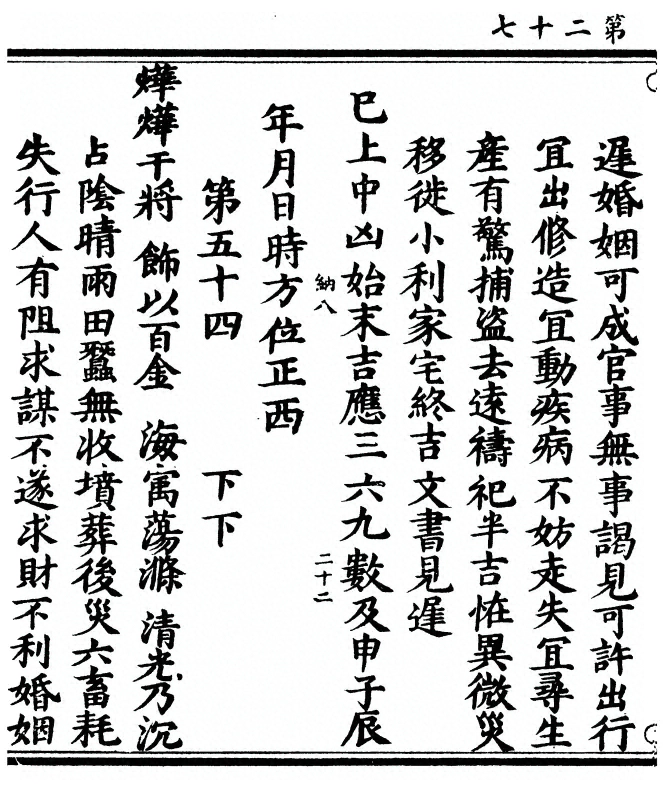 第二十七
遲婚姻可成官事無事謁見可許出行
冝出修造冝動疾病不妨走失冝尋生
產有驚捕盗去遠禱祀半吉恠異微災
移徙小利家宅終吉文書見遲
巳上中凶始末吉應三六九數及申子辰
納八
二十二
年月日時方位正西
第五十四 下下
燁燁干將 飾以百金 海寓蕩滌 清光乃沉
占陰晴雨田蠶無收墳葬後災六畜耗
失行人有阻求謀不遂求財不利婚姻